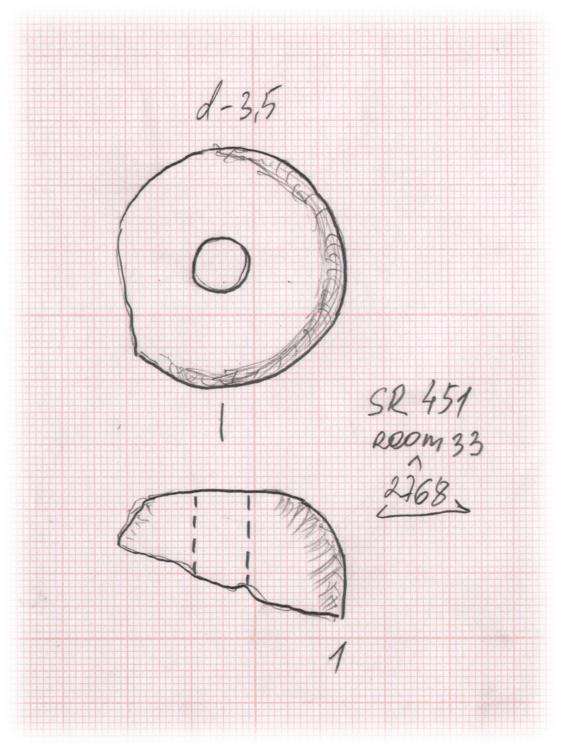 d-3,5
SR 451
ROOM 33
2768
1